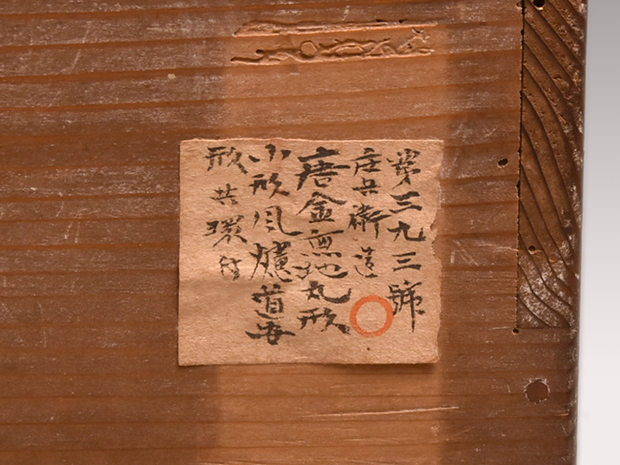 第三九三號
庄兵衛造
唐金無地丸形
小形風爐道安
形共環付